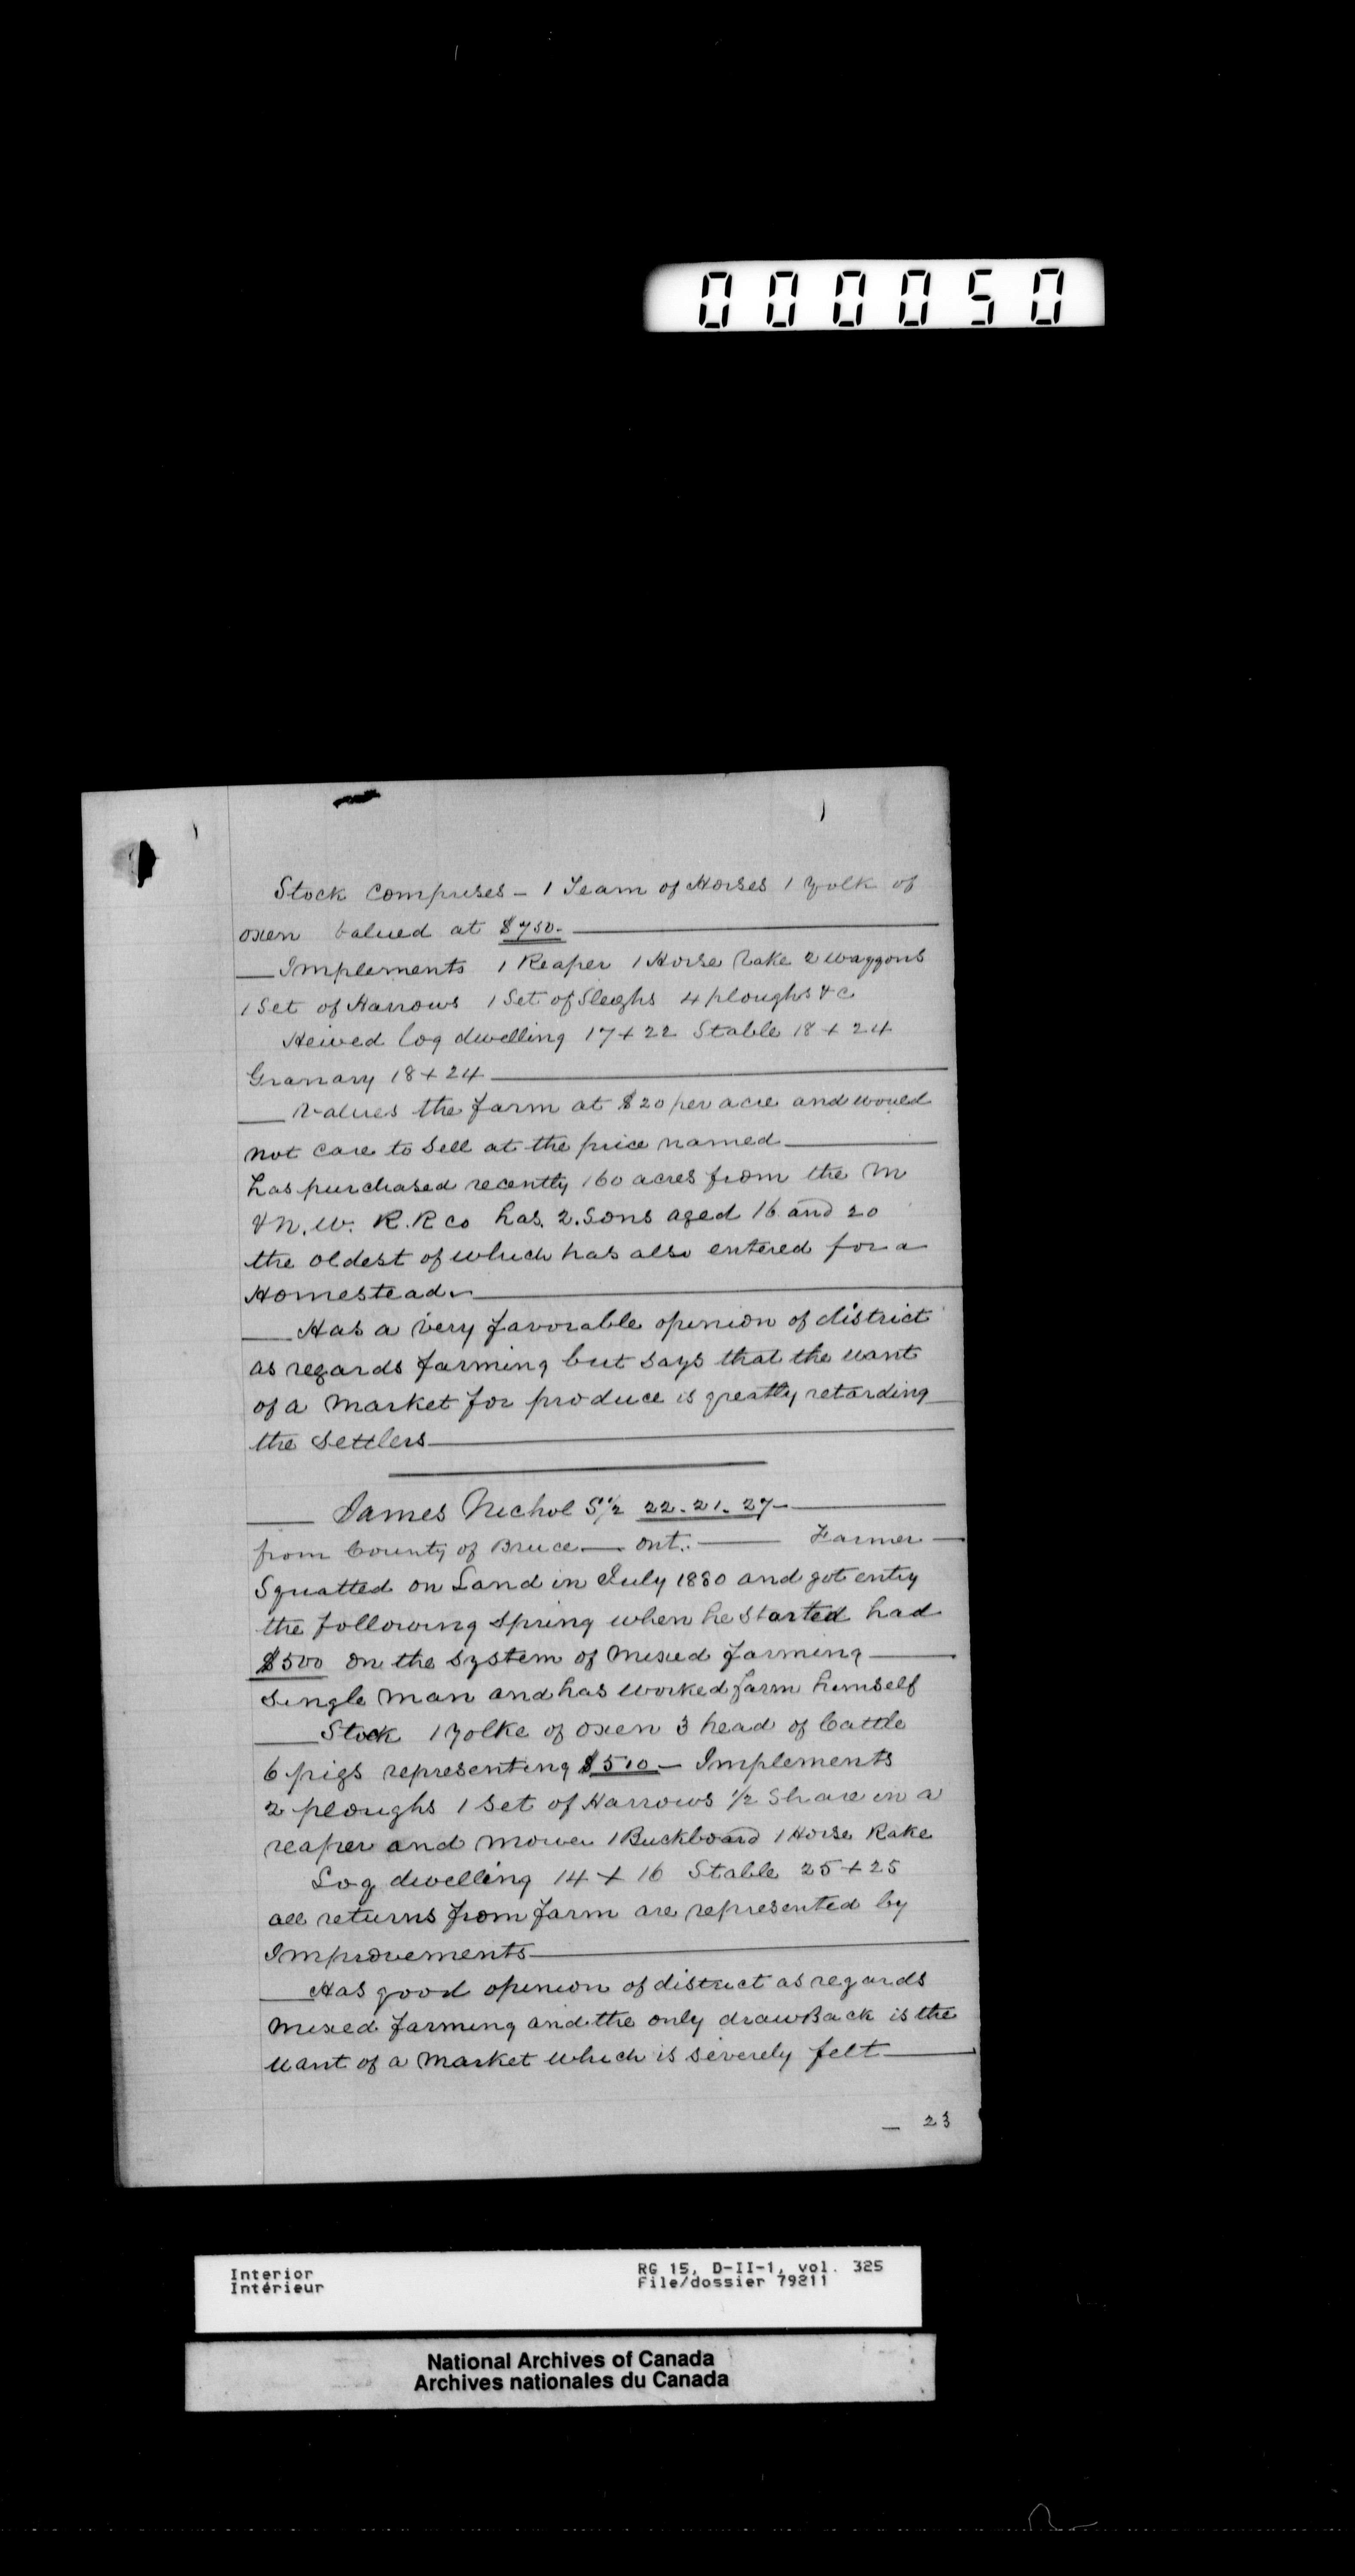 000050
Stock comprises - 1 Team of Horses 1 yolk of
oxen valued at $750.
Implements 1 Reaper 1 Horse Rake 2 waggons
1 Set of Harrows 1 Set of Sleighs 4 ploughs &c
Hewed log dwelling 17 + 22 Stable 18 + 24
Granary 18 + 24
Values the farm at $20 per acre and would
not care to sell at the price named
has purchased recently 160 acres from the M
& N. W. R. R Co has 2 sons aged 16 and 20
the oldest of which has also entered for a
Homestead
Has a very favorable opinion of district
as regards farming but says that the want
of a market for produce is greatly retarding
the settlers
James Nichol S 1/2 22-21-27
from County of Bruce Ont. Farmer
Squatted on Land in July 1880 and got entry
the following spring when he started had
$500 on the system of mixed farming
single man and has worked farm himself
Stock 1 yolke of oxen 3 head of Cattle
6 pigs representing $510 - Implements
2 ploughs 1 set of Harrows 1/2 Share in a
reaper and mower 1 Buckboard 1 Horse Rake
Log dwelling 14 + 16 Stable 25 + 25
all returns from farm are represented by
Improvements
Has good opinion of district as regards
mixed farming and the only drawBack is the
want of a market which is severely felt
- 23
Interior RG 15, D-II-1, vol. 325
Intérieur File/dossier 79211
National Archives of Canada
Archives nationales du Canada